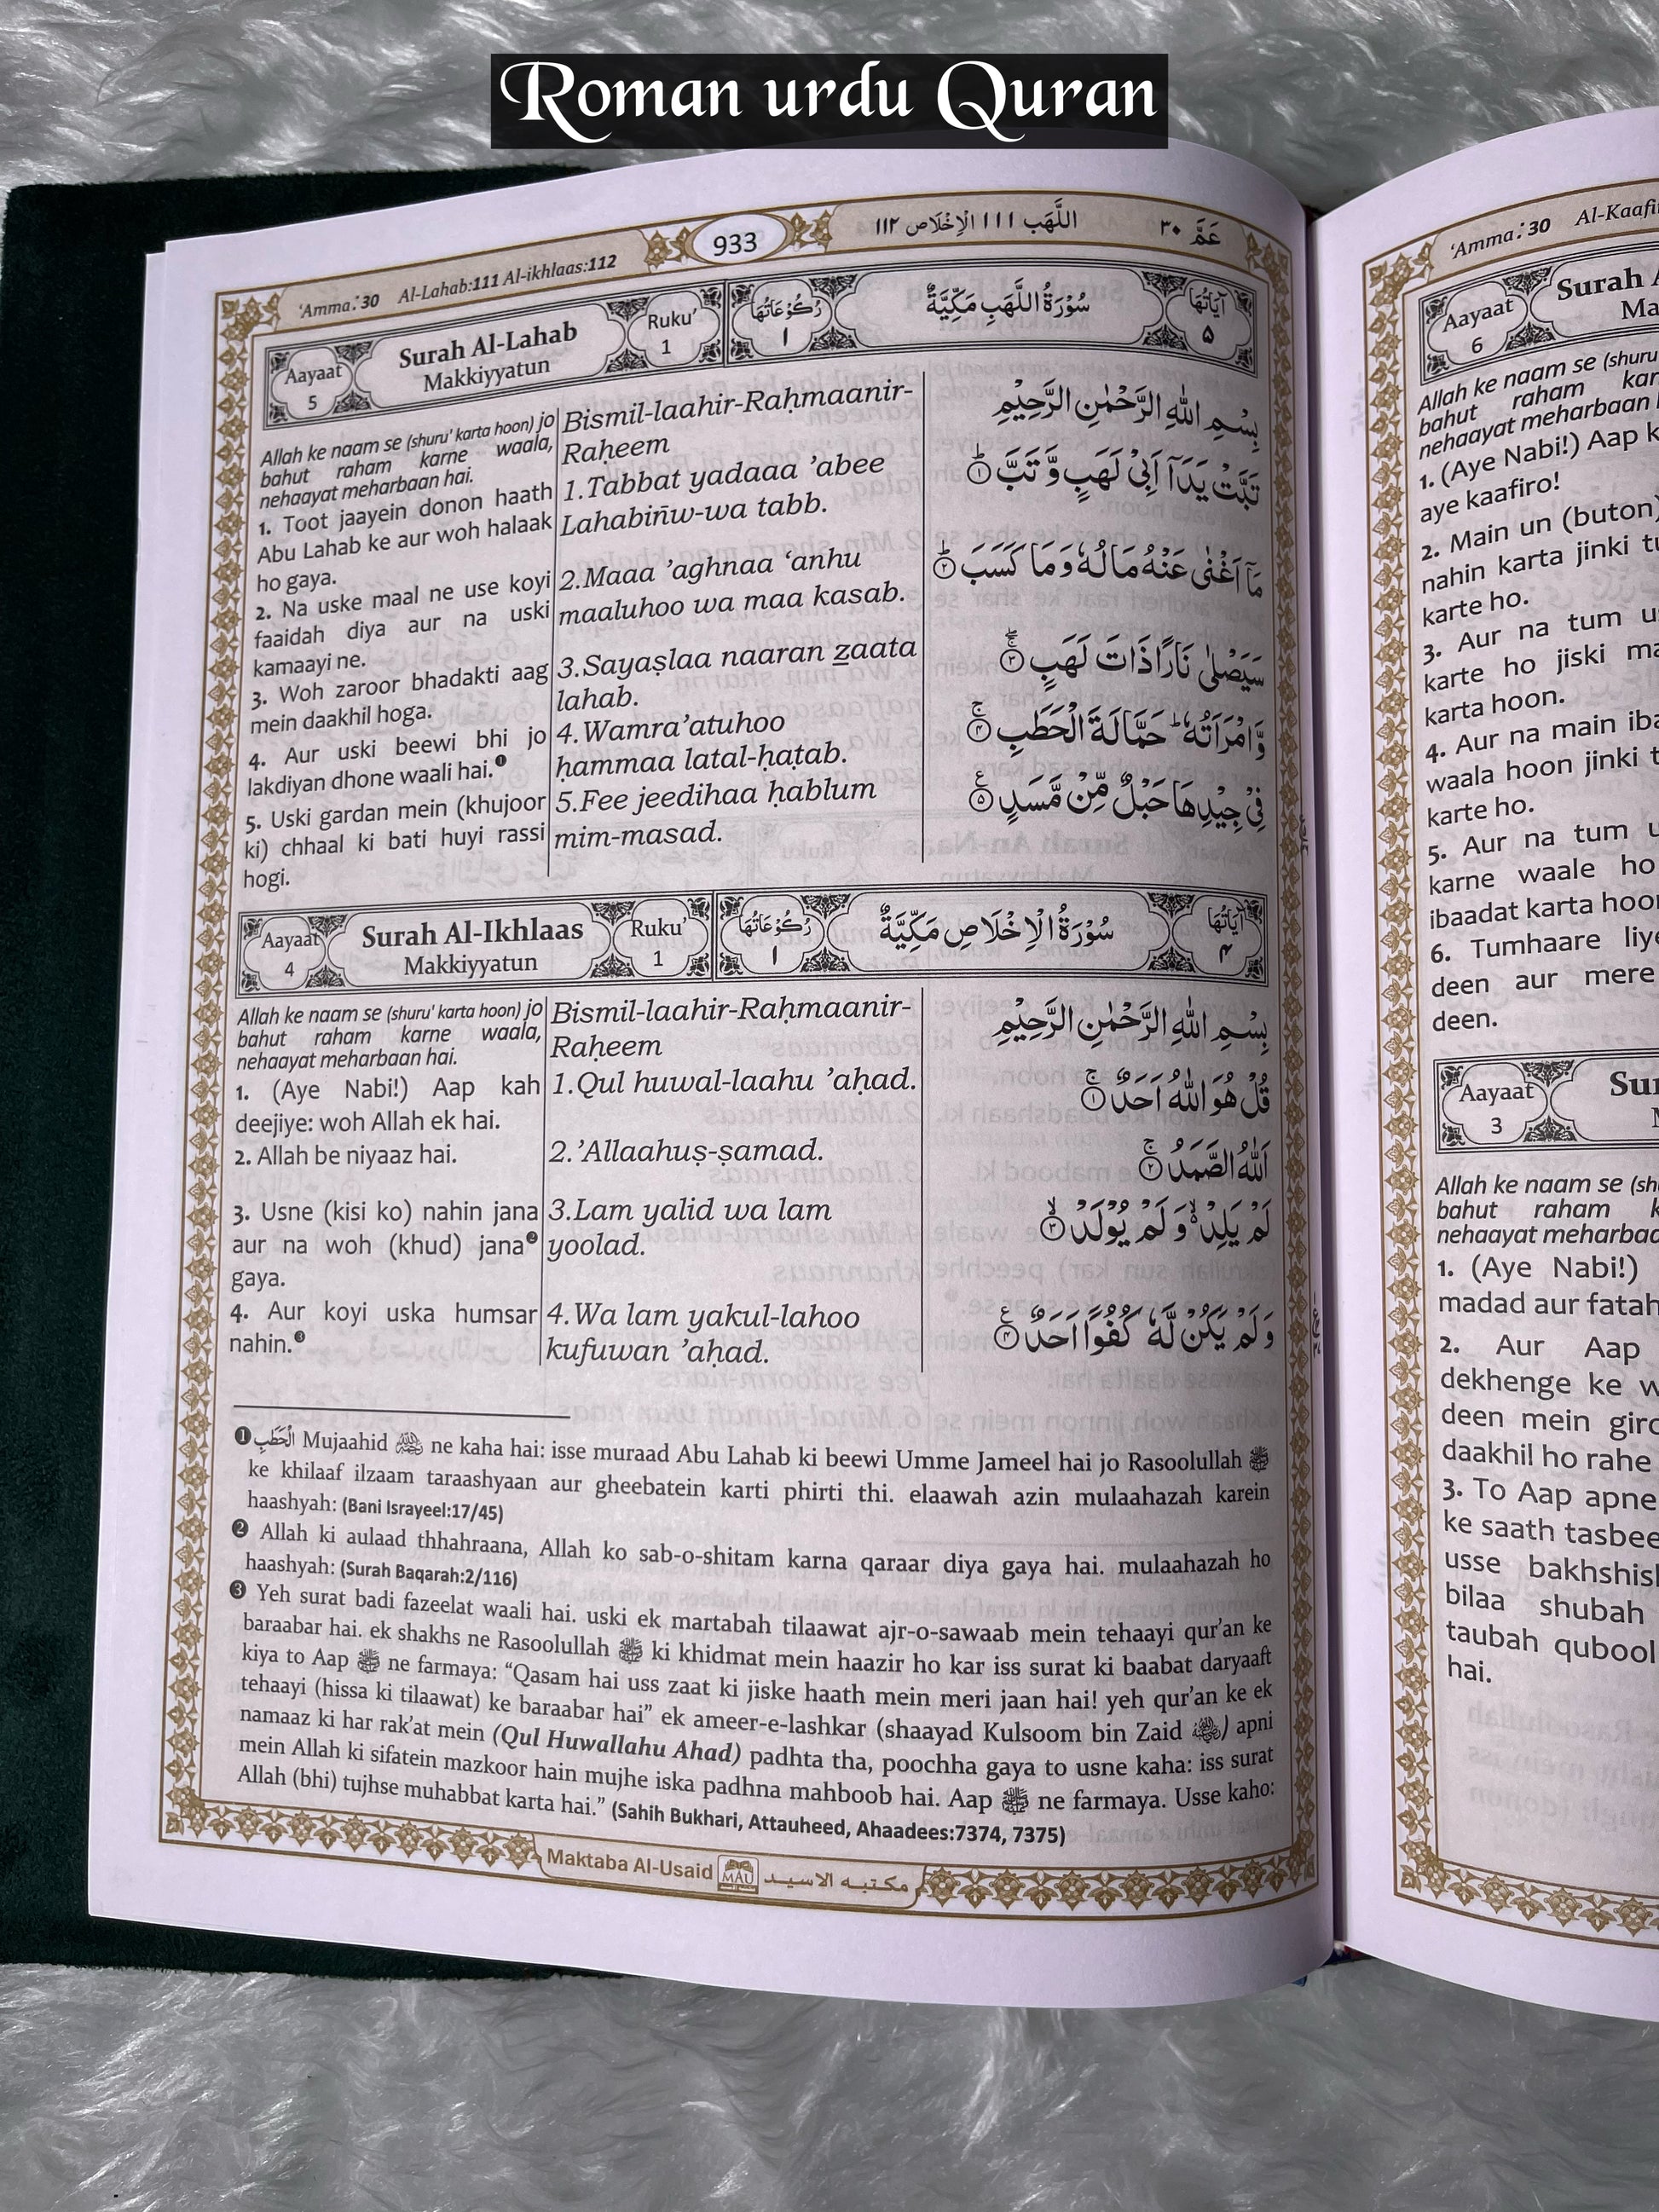 Roman urdu Quran
‘Amma: 30 Al-Lahab:111 Al-ikhlaas:112
933
اللَّهَب ١١١ الْاِخْلَاص ١١٢
عَمَّ ٣٠
Aayaat
5
Surah Al-Lahab
Makkiyyatun
Ruku’
1
رُكُوْعَاتُهَا
١
سُوْرَةُ اللَّهَبِ مَكِّيَّةٌ
اٰيَاتُهَا
٥
Allah ke naam se (shuru' karta hoon) jo
bahut raham karne waala,
nehaayat meharbaan hai.
1. Toot jaayein donon haath
Abu Lahab ke aur woh halaak
ho gaya.
2. Na uske maal ne use koyi
faaidah diya aur na uski
kamaayi ne.
3. Woh zaroor bhadakti aag
mein daakhil hoga.
4. Aur uski beewi bhi jo
lakdiyan dhone waali hai.❶
5. Uski gardan mein (khujoor
ki) chhaal ki bati huyi rassi
hogi.
Bismil-laahir-Raḥmaanir-
Raḥeem
1.Tabbat yadaaa ’abee
Lahabiñw-wa tabb.
2.Maaa ’aghnaa ‘anhu
maaluhoo wa maa kasab.
3.Sayaṣlaa naaran z̲aata
lahab.
4.Wamra’atuhoo
ḥammaa latal-ḥaṭab.
5.Fee jeedihaa ḥablum
mim-masad.
بِسْمِ اللهِ الرَّحْمٰنِ الرَّحِيْمِ
تَبَّتْ يَدَآ اَبِيْ لَهَبٍ وَّ تَبَّ ۝١
مَآ اَغْنٰى عَنْهُ مَالُهٗ وَمَا كَسَبَ ۝٢
سَيَصْلٰى نَارًا ذَاتَ لَهَبٍ ۝٣
وَّامْرَاَتُهٗ ؕ حَمَّالَةَ الْحَطَبِ ۝٤
فِيْ جِيْدِهَا حَبْلٌ مِّنْ مَّسَدٍ ۝٥
Aayaat
4
Surah Al-Ikhlaas
Makkiyyatun
Ruku’
1
رُكُوْعَاتُهَا
١
سُوْرَةُ الْاِخْلَاصِ مَكِّيَّةٌ
اٰيَاتُهَا
٤
Allah ke naam se (shuru' karta hoon) jo
bahut raham karne waala,
nehaayat meharbaan hai.
1. (Aye Nabi!) Aap kah
deejiye: woh Allah ek hai.
2. Allah be niyaaz hai.
3. Usne (kisi ko) nahin jana
aur na woh (khud) jana❷
gaya.
4. Aur koyi uska humsar
nahin.❸
Bismil-laahir-Raḥmaanir-
Raḥeem
1.Qul huwal-laahu ’aḥad.
2.’Allaahuṣ-ṣamad.
3.Lam yalid wa lam
yoolad.
4.Wa lam yakul-lahoo
kufuwan ’aḥad.
بِسْمِ اللهِ الرَّحْمٰنِ الرَّحِيْمِ
قُلْ هُوَ اللهُ اَحَدٌ ۝١
اَللهُ الصَّمَدُ ۝٢
لَمْ يَلِدْ وَلَمْ يُوْلَدْ ۝٣
وَلَمْ يَكُنْ لَّهٗ كُفُوًا اَحَدٌ ۝٤
❶ الْحَطَبِ Mujaahid ne kaha hai: isse muraad Abu Lahab ki beewi Umme Jameel hai jo Rasoolullah ﷺ
ke khilaaf ilzaam taraashyaan aur gheebatein karti phirti thi. elaawah azin mulaahazah karein
haashyah: (Bani Israyeel:17/45)
❷ Allah ki aulaad thhahraana, Allah ko sab-o-shitam karna qaraar diya gaya hai. mulaahazah ho
haashyah: (Surah Baqarah:2/116)
❸ Yeh surat badi fazeelat waali hai. uski ek martabah tilaawat ajr-o-sawaab mein tehaayi qur’an ke
baraabar hai. ek shakhs ne Rasoolullah ﷺ ki khidmat mein haazir ho kar iss surat ki baabat daryaaft
kiya to Aap ﷺ ne farmaya: “Qasam hai uss zaat ki jiske haath mein meri jaan hai! yeh qur’an ke ek
tehaayi (hissa ki tilaawat) ke baraabar hai” ek ameer-e-lashkar (shaayad Kulsoom bin Zaid ) apni
namaaz ki har rak’at mein (Qul Huwallahu Ahad) padhta tha, poochha gaya to usne kaha: iss surat
mein Allah ki sifatein mazkoor hain mujhe iska padhna mahboob hai. Aap ﷺ ne farmaya. Usse kaho:
Allah (bhi) tujhse muhabbat karta hai.” (Sahih Bukhari, Attauheed, Ahaadees:7374, 7375)
Maktaba Al-Usaid MAU مكتبه الاسيد
‘Amma: 30 Al-Kaafi
Aayaat
6
Surah A
Ma
Allah ke naam se (shuru
bahut raham kar
nehaayat meharbaan
1. (Aye Nabi!) Aap k
aye kaafiro!
2. Main un (buton)
nahin karta jinki tu
karte ho.
3. Aur na tum u
karte ho jiski ma
karta hoon.
4. Aur na main iba
waala hoon jinki t
karte ho.
5. Aur na tum u
karne waale ho
ibaadat karta hoo
6. Tumhaare liye
deen aur mere
deen.
Aayaat
3
Sur
Allah ke naam se (sh
bahut raham k
nehaayat meharbaa
1. (Aye Nabi!)
madad aur fatah
2. Aur Aap
dekhenge ke w
deen mein giro
daakhil ho rahe
3. To Aap apne
ke saath tasbee
usse bakhshish
bilaa shubah
taubah qubool
hai.